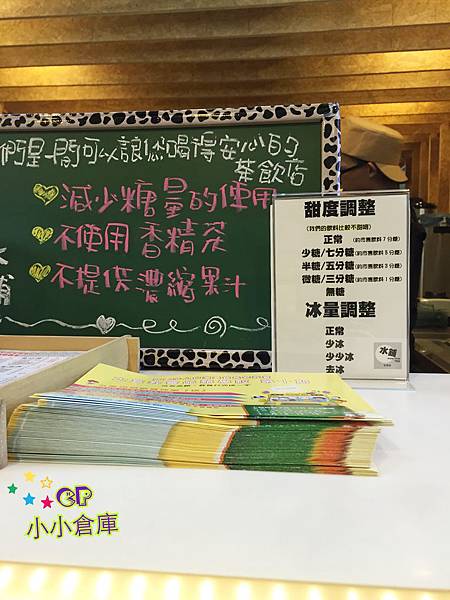 們是一間可以讓您喝得安心的
茶飲店
減少糖量的使用
不使用香精茶
不提供濃縮果汁
甜度調整
(我們的飲料比較不甜唷)
正常 (約市售飲料7分糖)
少糖/七分糖(約市售飲料5分糖)
半糖/五分糖(約市售飲料3分糖)
微糖/三分糖(約市售飲料1分糖)
無糖
冰量調整
正常
少冰
少少冰
去冰
水鋪
CP
小小倉庫